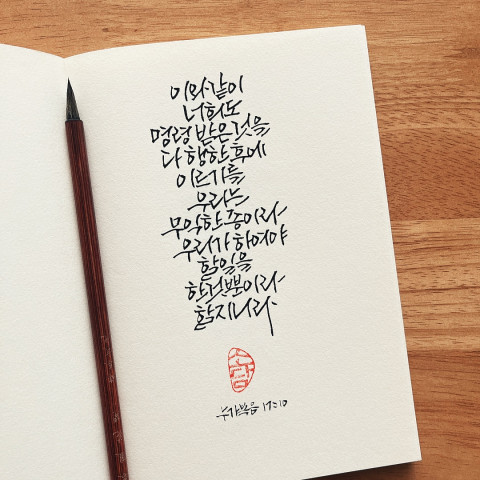 이와같이
너희도
명령 받은것을
다 행한후에
이르기를
우리는
무익한 종이라
우리가 하여야
할일을
한것뿐이라
할지니라
누가복음 17:10